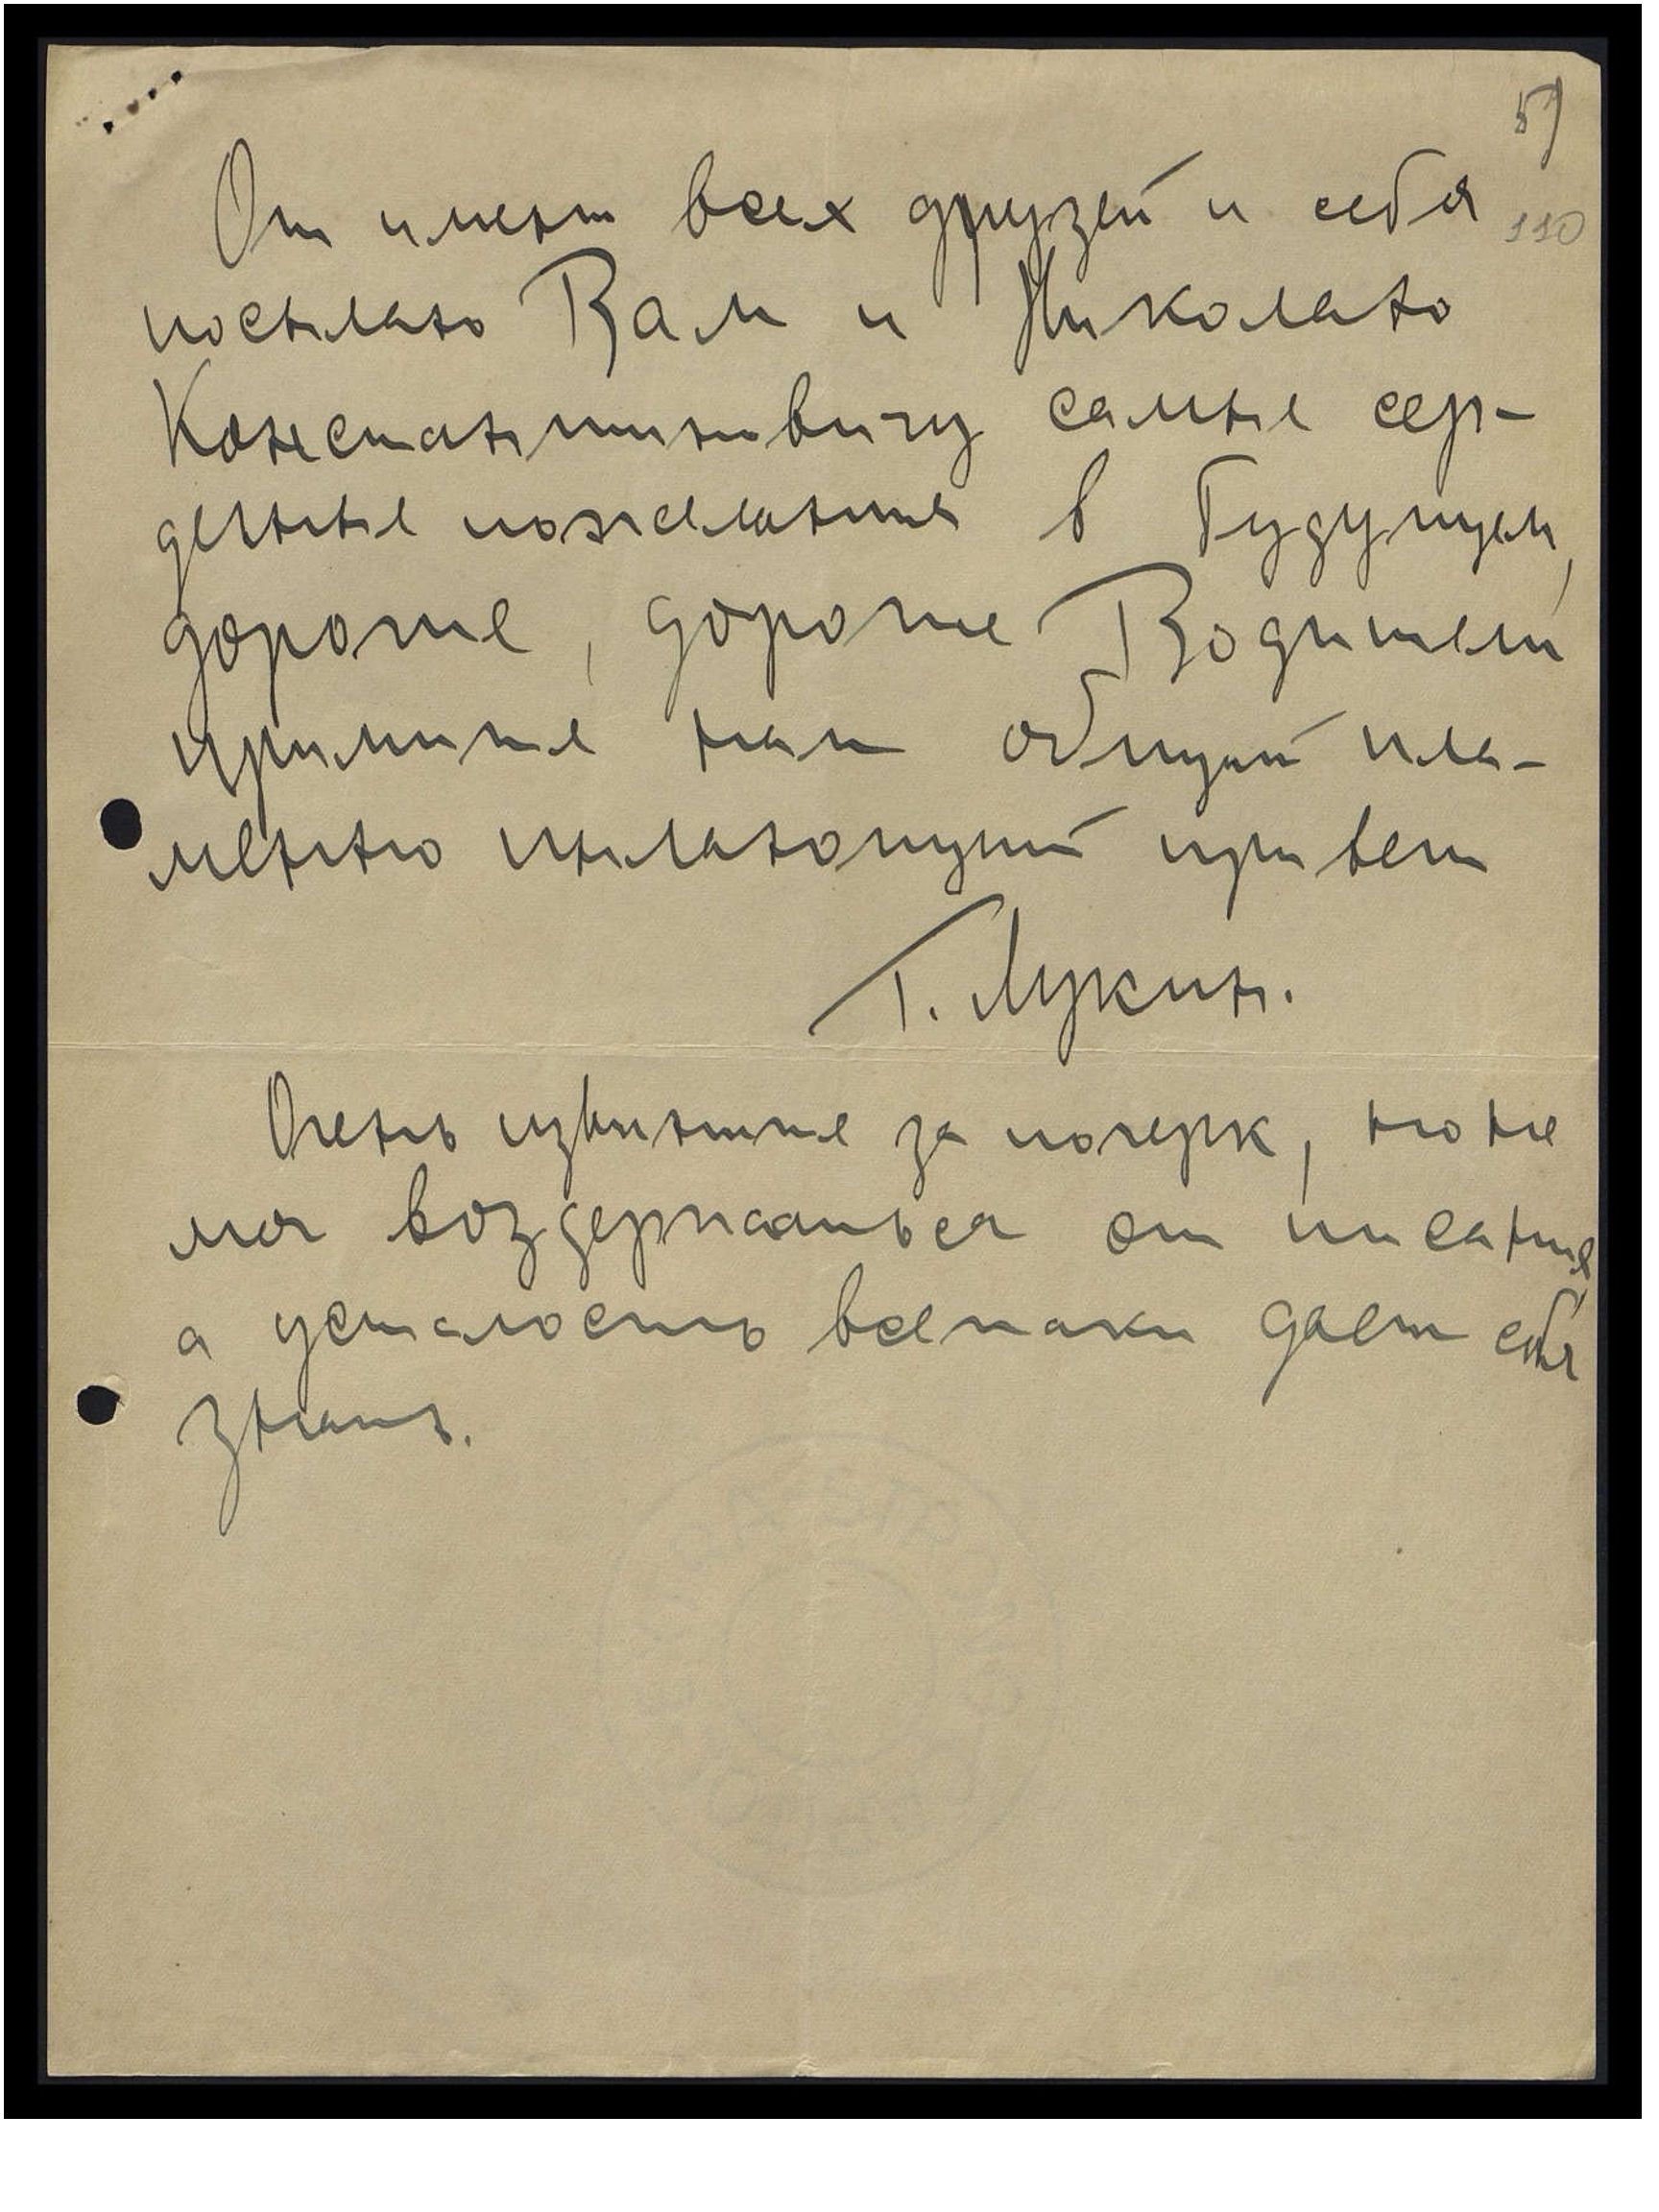 59
110
От имени всех друзей и себя
посылаю Вам и Николаю
Константиновичу самые сер-
дечные пожелания в будущем,
дорогие, дорогие Водители
примите наш общий пла-
менно пылающий привет
Г. Лукин.
Очень извините за почерк, но не
мог воздержаться от писания
а усталость всетаки дает себя
знать.